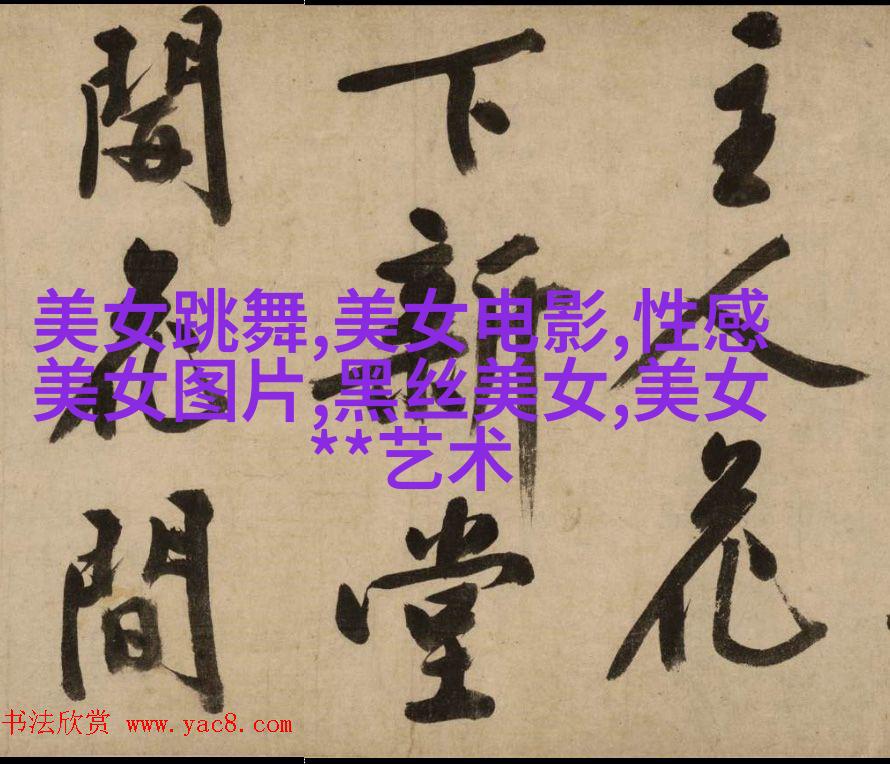 主人花
下新堂
間
美女跳舞,美女电影,性感
美女图片,黑丝美女,美女
**艺术
书法欣赏 www.yac8.com